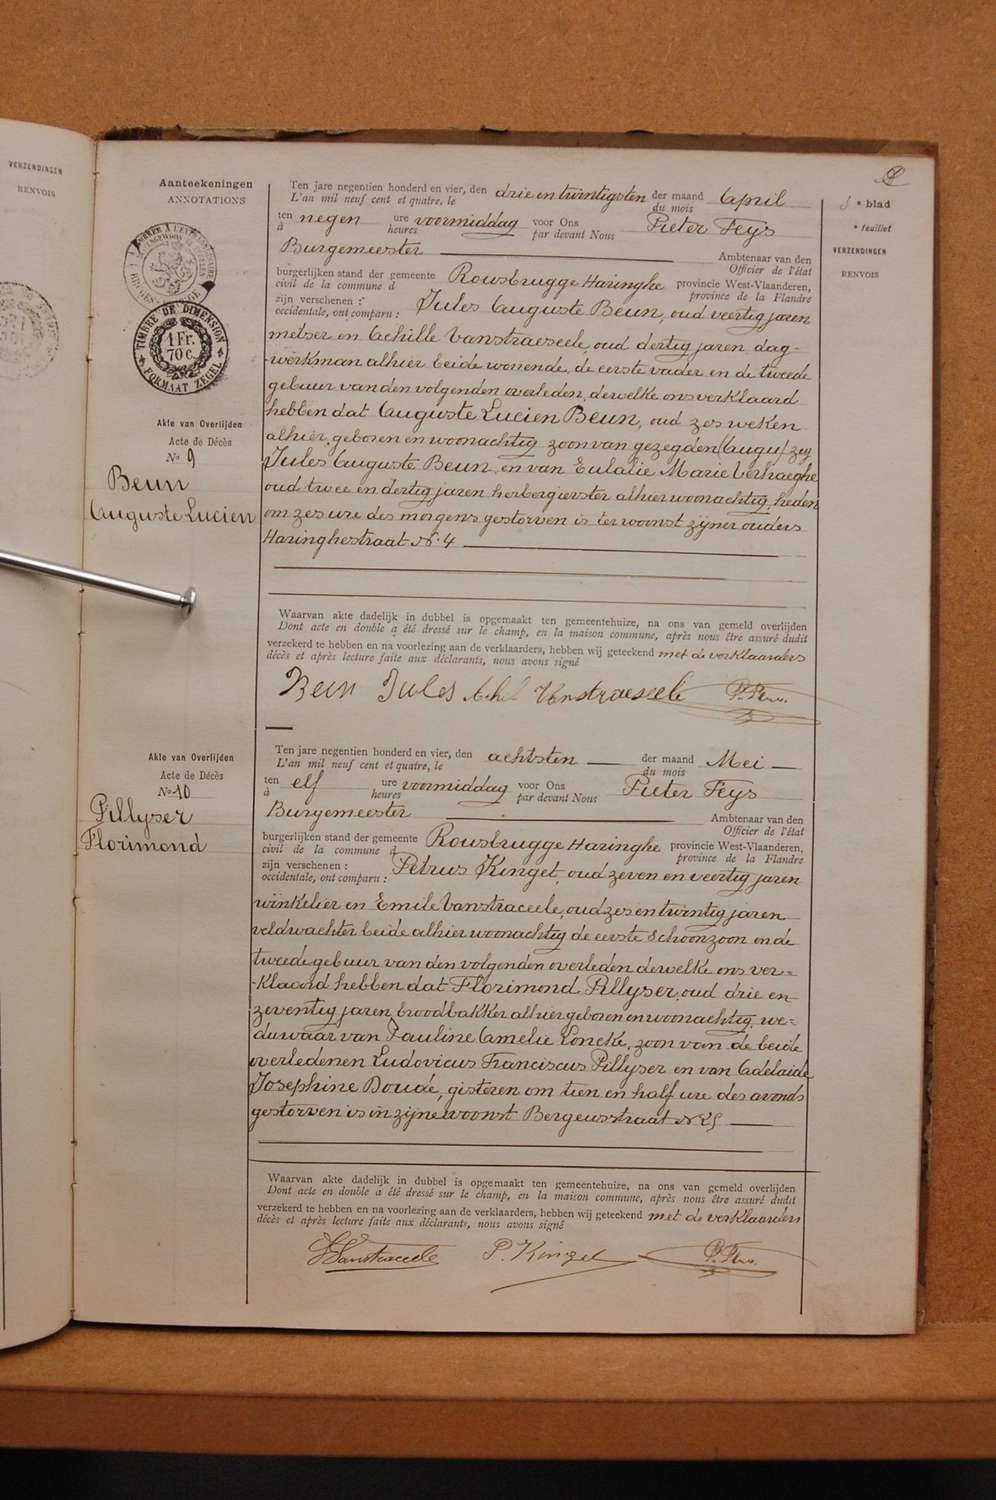 VERZENDINGEN
RENVOIS
Aanteekeningen
ANNOTATIONS
TIMBRE DE DIMENSION
1 Fr.
70 c.
FORMAAT ZEGEL
5e blad
e feuillet
VERZENDINGEN
RENVOIS
Ten jare negentien honderd en vier, den drie en twintigsten der maand April
L'an mil neuf cent et quatre, le du mois
ten negen ure voormiddag voor Ons Pieter Feys
à heures par devant Nous
Burgemeester Ambtenaar van den
Officier de l'état
burgerlijken stand der gemeente Rousbrugge Haringhe provincie West-Vlaanderen,
civil de la commune d province de la Flandre
zijn verschenen : Jules Auguste Beun, oud veertig jaren
occidentale, ont comparu :
metser en Achille Vanstraeseele, oud dertig jaren dag-
-werkman alhier beide wonende, de eerste vader en de tweede
gebuur van den volgenden overleden, dewelke ons verklaard
hebben dat Auguste Lucien Beun, oud zes weken
alhier geboren en woonachtig zoon van gezegden (Augu) zeg
Jules Auguste Beun, en van Eulalie Marie Verhaeghe
oud twee en dertig jaren herbergierster alhier woonachtig, heden
om zes ure des morgens gestorven is ter woonst zijner ouders
Haringhestraat No. 4
Akte van Overlijden
Acte de Décès
No 9
Beun
Auguste Lucien
Waarvan akte dadelijk in dubbel is opgemaakt ten gemeentehuize, na ons van gemeld overlijden
Dont acte en double a été dressé sur le champ, en la maison commune, après nous être assuré dudit
verzekerd te hebben en na voorlezing aan de verklaarders, hebben wij geteekend met de verklaarders
décès et après lecture faite aux déclarants, nous avons signé
Beun Jules Achel Vanstraeseele P. Feys.
Akte van Overlijden
Acte de Décès
No 10
Pillyser
Florimond
Ten jare negentien honderd en vier, den achtsten der maand Mei
L'an mil neuf cent et quatre, le du mois
ten elf ure voormiddag voor Ons Pieter Feys
à heures par devant Nous
Burgemeester Ambtenaar van den
Officier de l'état
burgerlijken stand der gemeente Rousbrugge Haringhe provincie West-Vlaanderen,
civil de la commune d province de la Flandre
zijn verschenen : Petrus Kinget, oud zeven en veertig jaren
occidentale, ont comparu :
winkelier en Emile Vanstraceele, oud zes en twintig jaren
veldwachter beide alhier woonachtig de eerste schoonzoon en de
tweede gebuur van den volgenden overleden dewelke ons ver=
-klaard hebben dat Florimond Pillyser, oud drie en
zeventig jaren, broodbakker alhier geboren en woonachtig, we=
duwaar van Pauline Amelie Loncke, zoon van de beide
overledenen Ludovicus Franciscus Pillyser en van Adelaide
Josephine Doude, gisteren om tien en half ure des avonds
gestorven is in zijne woonst Bergenstraat No 25
Waarvan akte dadelijk in dubbel is opgemaakt ten gemeentehuize, na ons van gemeld overlijden
Dont acte en double a été dressé sur le champ, en la maison commune, après nous être assuré dudit
verzekerd te hebben en na voorlezing aan de verklaarders, hebben wij geteekend met de verklaarders
décès et après lecture faite aux déclarants, nous avons signé
E Vanstraceele P. Kinget P. Feys.